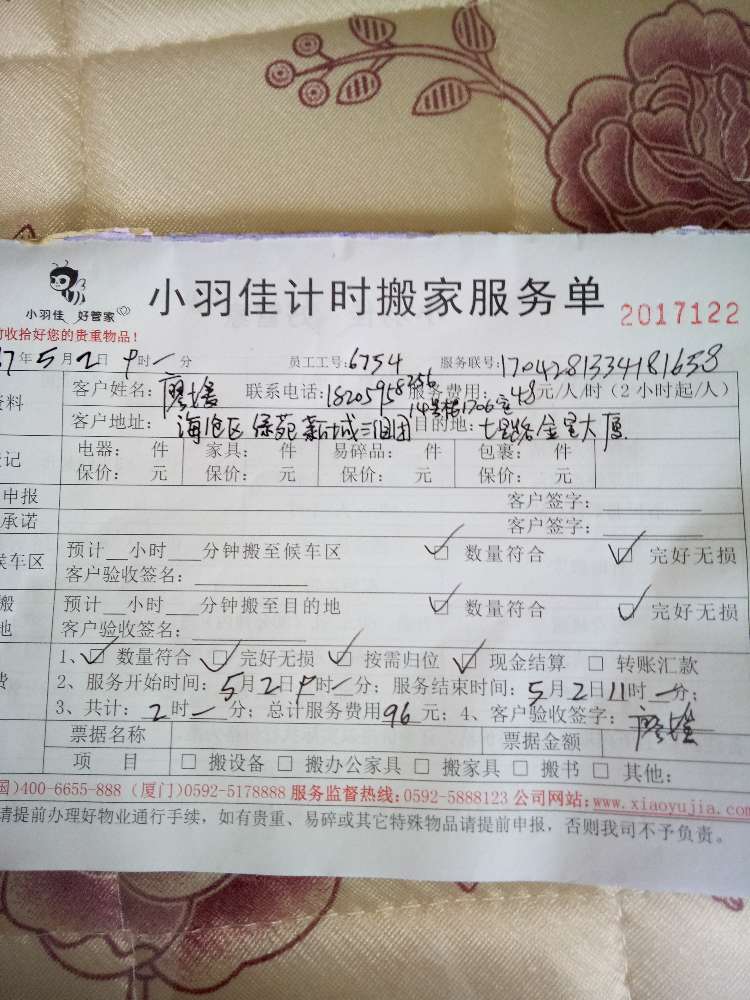 小羽佳 好管家
小羽佳计时搬家服务单 2017122
收拾好您的贵重物品！
年5月2日9时一分 员工工号：6754 服务联号：1704281334181658
资料 客户姓名：廖媛 联系电话：18205958256 服务费用：48元/人/时（2小时起/人）
客户地址：海沧区绿苑新城三组团14号楼1706室 目的地：七星路金星大厦
记 电器： 件 家具： 件 易碎品： 件 包裹： 件
保价： 元 保价： 元 保价： 元 保价： 元
申报 客户签字：
承诺 客户签字：
候车区 预计__小时__分钟搬至候车区 ☑ 数量符合 ☑ 完好无损
客户验收签名：
搬 预计__小时__分钟搬至目的地 ☑ 数量符合 ☑ 完好无损
地 客户验收签名：
1、☑ 数量符合 ☑ 完好无损 ☑ 按需归位 ☑ 现金结算 □ 转账汇款
费 2、服务开始时间：5月2日9时一分；服务结束时间：5月2日11时一分；
3、共计：2时一分；总计服务费用96元；4、客户验收签字：廖媛
票据名称 票据金额
项 目 □ 搬设备 □ 搬办公家具 □ 搬家具 □ 搬书 □ 其他：
国)400-6655-888 (厦门)0592-5178888 服务监督热线：0592-5888123 公司网站：www.xiaoyujia.com
请提前办理好物业通行手续，如有贵重、易碎或其它特殊物品请提前申报，否则我司不予负责。